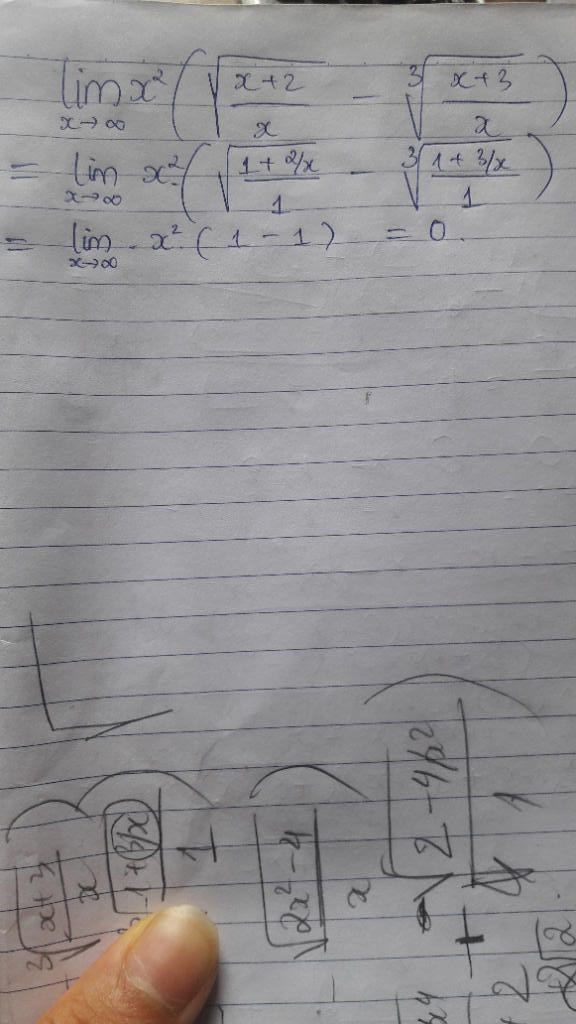 lim x→∞ x² ( √((x+2)/x) − ∛((x+3)/x) )
= lim x→∞ x² ( √((1+2/x)/1) − ∛((1+3/x)/1) )
= lim x→∞ x² ( 1 − 1 ) = 0.
∛(x+3)
x
1+3/x
1
√(2x²−4)
x
√(2−4/x²)
1
2
√2